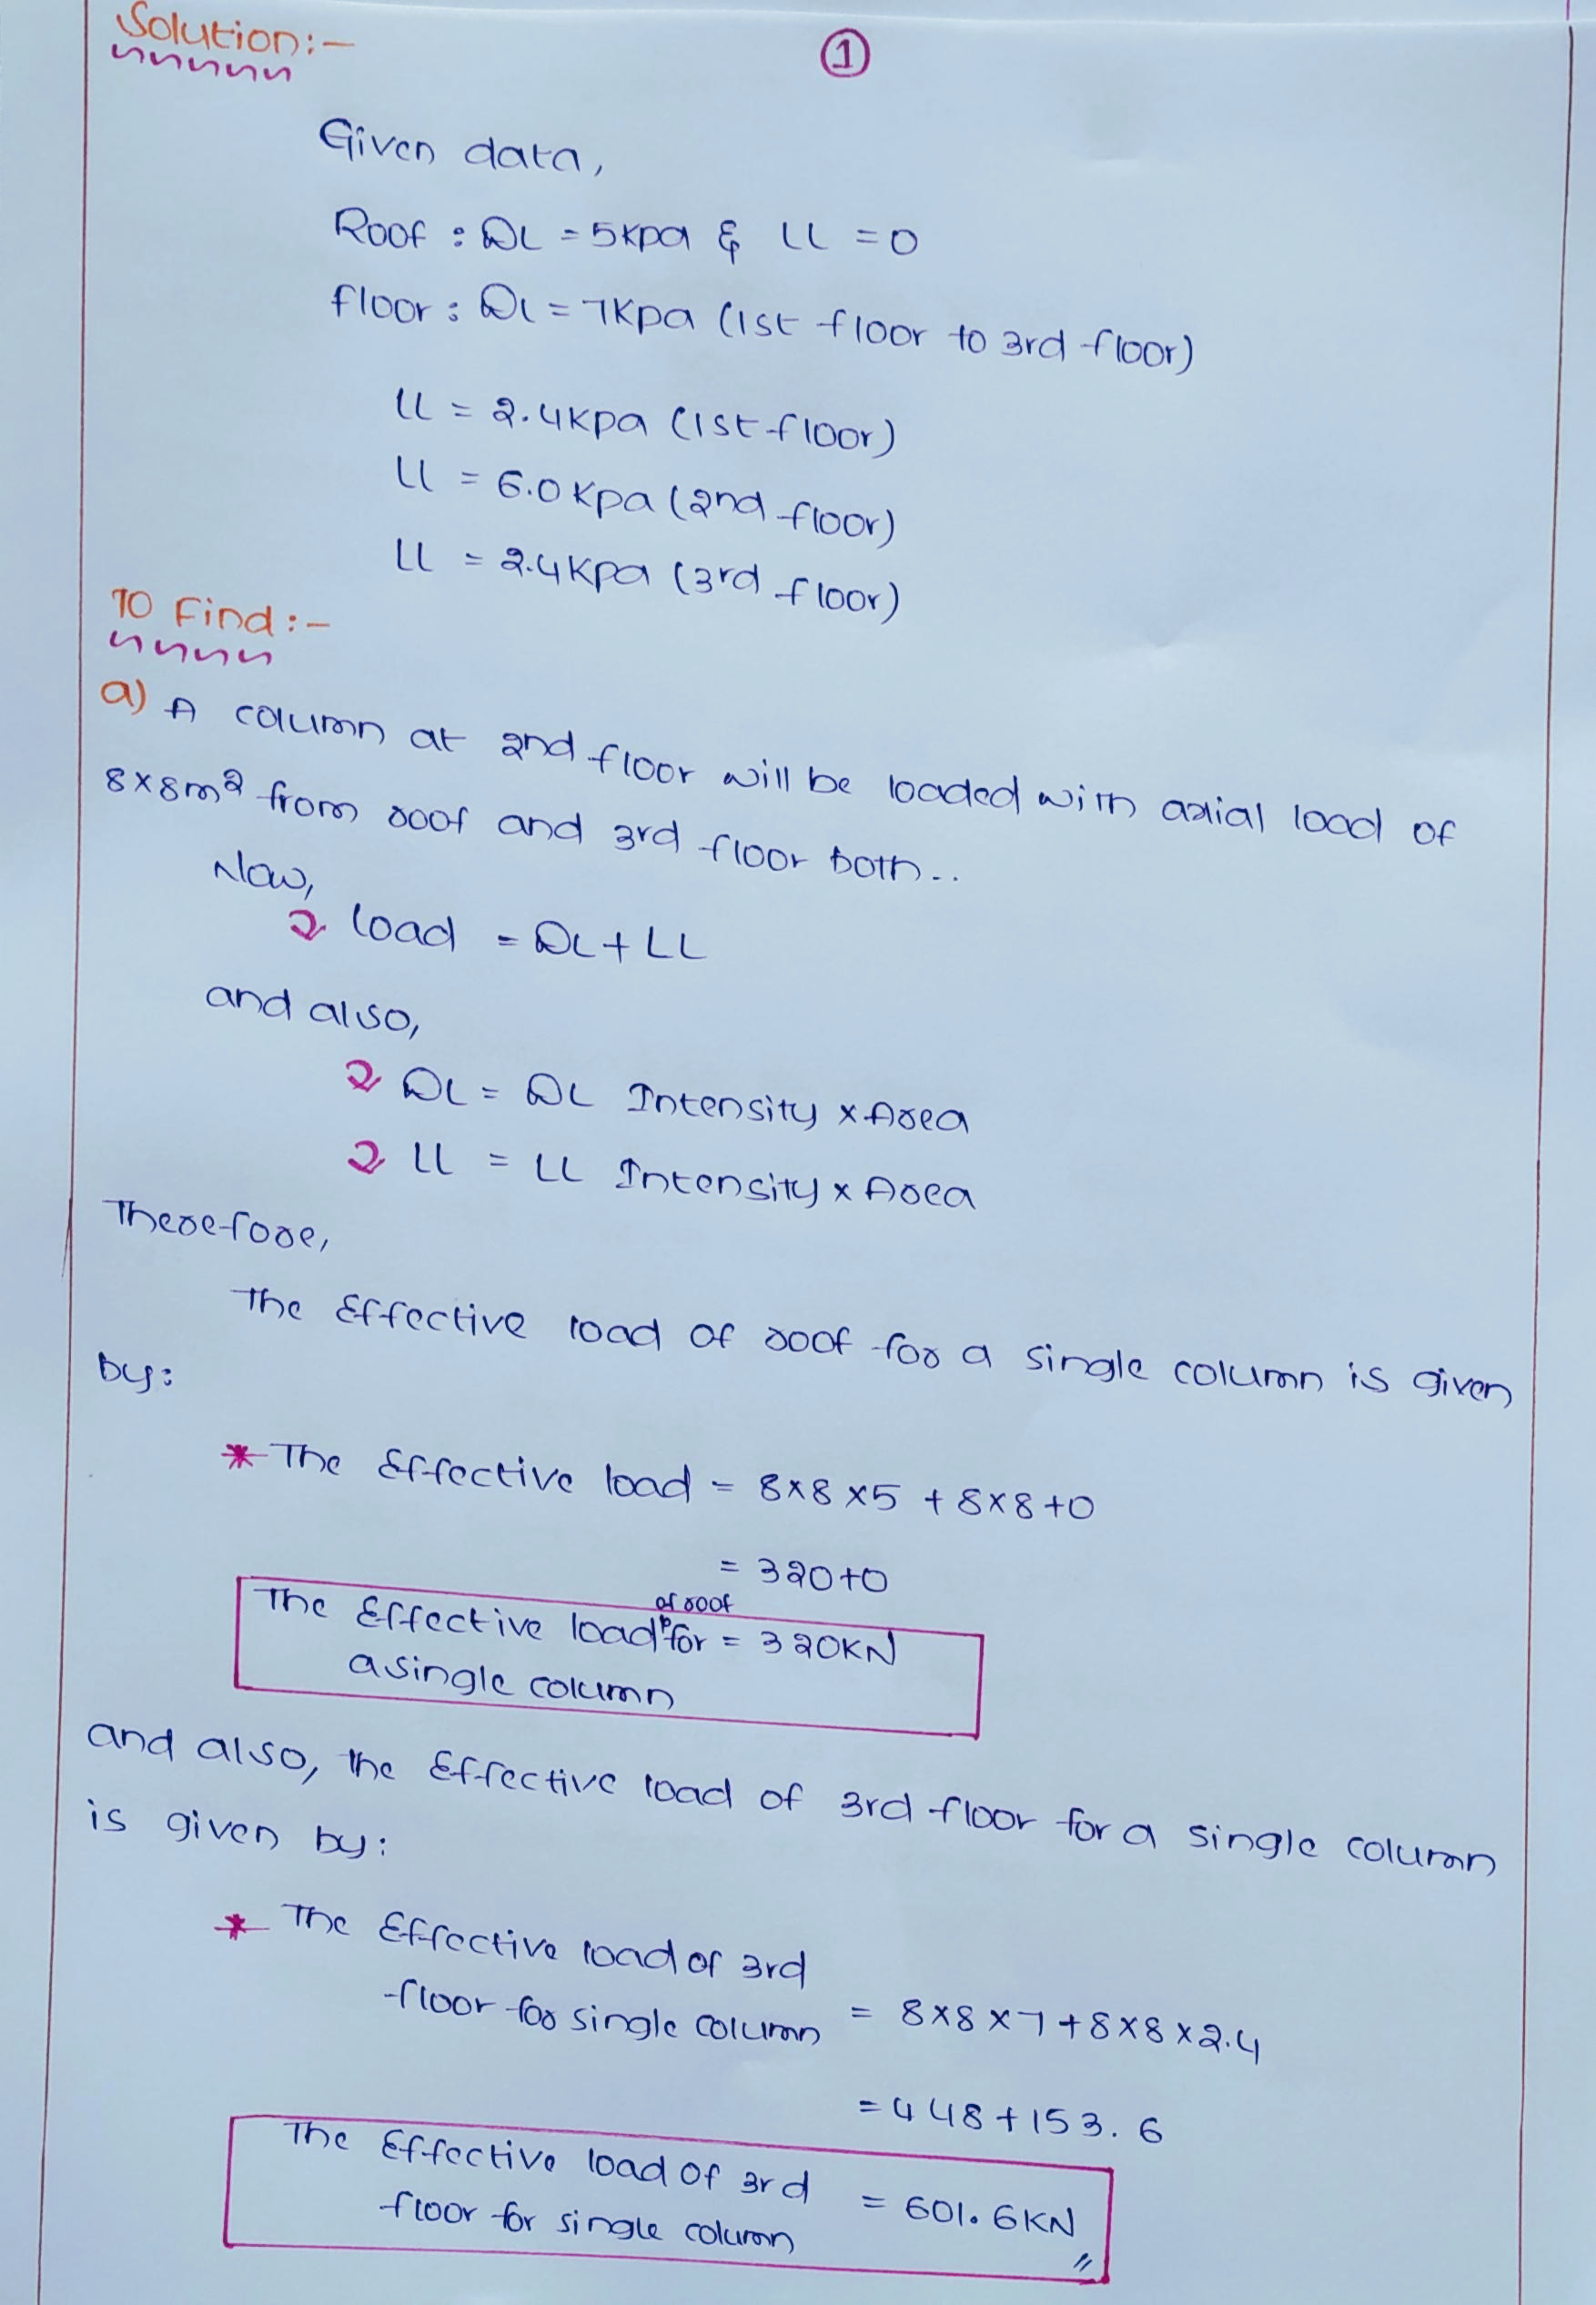 Solution:-
①
Given data,
Roof : DL = 5kpa & LL = 0
floor : DL = 7kpa (1st floor to 3rd floor)
LL = 2.4kpa (1st floor)
LL = 6.0kpa (2nd floor)
LL = 2.4kpa (3rd floor)
To Find :-
a) A column at 2nd floor will be loaded with axial load of
8x8m² from roof and 3rd floor both..
Now,
load = DL + LL
and also,
DL = DL Intensity x Area
LL = LL Intensity x Area
Therefore,
The Effective load of roof for a single column is given
by:
* The Effective load = 8x8x5 + 8x8+0
= 320+0
of roof
The Effective load for = 320KN
a single column
and also, the Effective load of 3rd floor for a single column
is given by:
* The Effective load of 3rd
floor for single column = 8x8x7+8x8x2.4
= 448+153.6
The Effective load of 3rd
floor for single column = 601.6KN